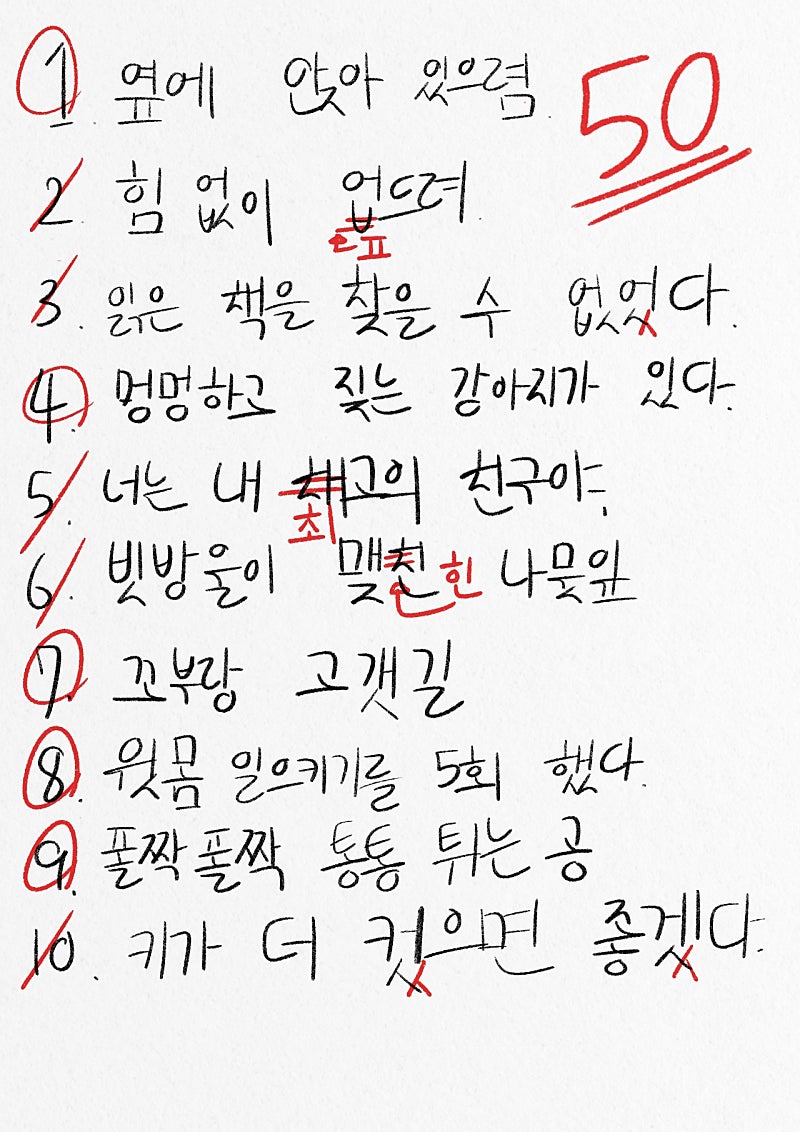 50
1. 옆에 앉아 있으렴.
2. 힘 없이 업드려.
エ프
3. 읽은 책을 찾을 수 없었다.
4. 멍멍하고 짖는 강아지가 있다.
5. 너는 내 채고의 친구야.
최
6. 빗방울이 맺친 힌 나뭇잎
7. 꼬부랑 고갯길
8. 윗몸 일으키기를 5회 했다.
9. 폴짝폴짝 통통 튀는 공
10. 키가 더 컸으면 좋겠다.